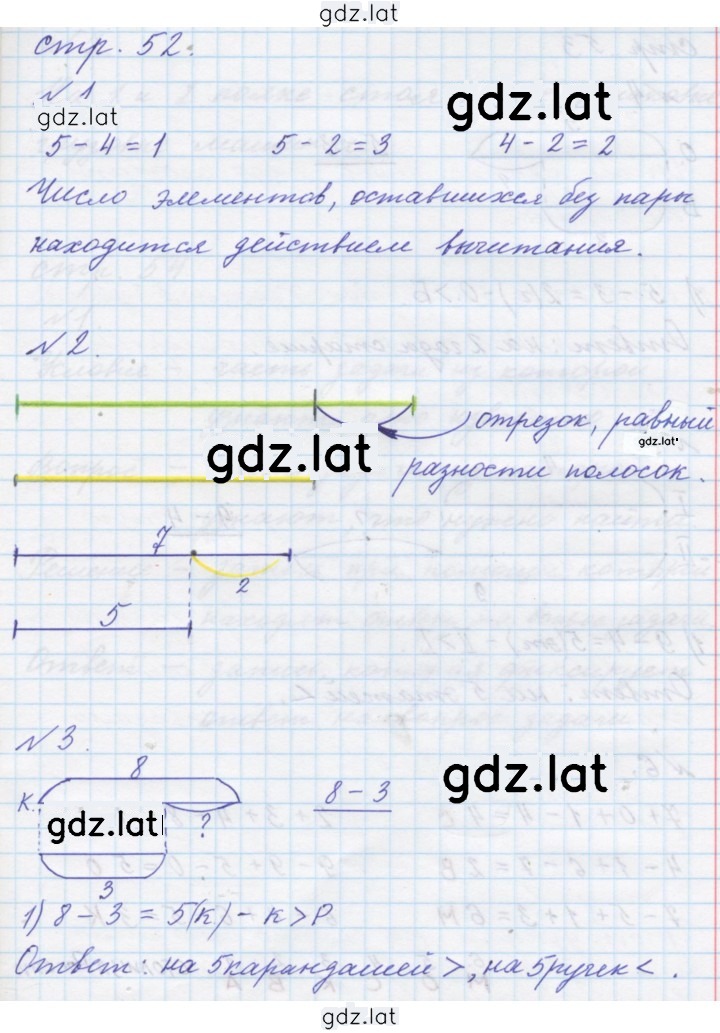 gdz.lat
стр. 52.
№1
gdz.lat
gdz.lat
5 - 4 = 1 5 - 2 = 3 4 - 2 = 2
Число элементов, оставшихся без пары
находится действием вычитания.
№2.
отрезок, равный
gdz.lat
gdz.lat
разности полосок.
7
2
5
№3.
8
gdz.lat
К. 8 - 3
gdz.lat
?
3
1) 8 - 3 = 5(к) - к > Р
Ответ: на 5 карандашей >, на 5 ручек < .
gdz.lat